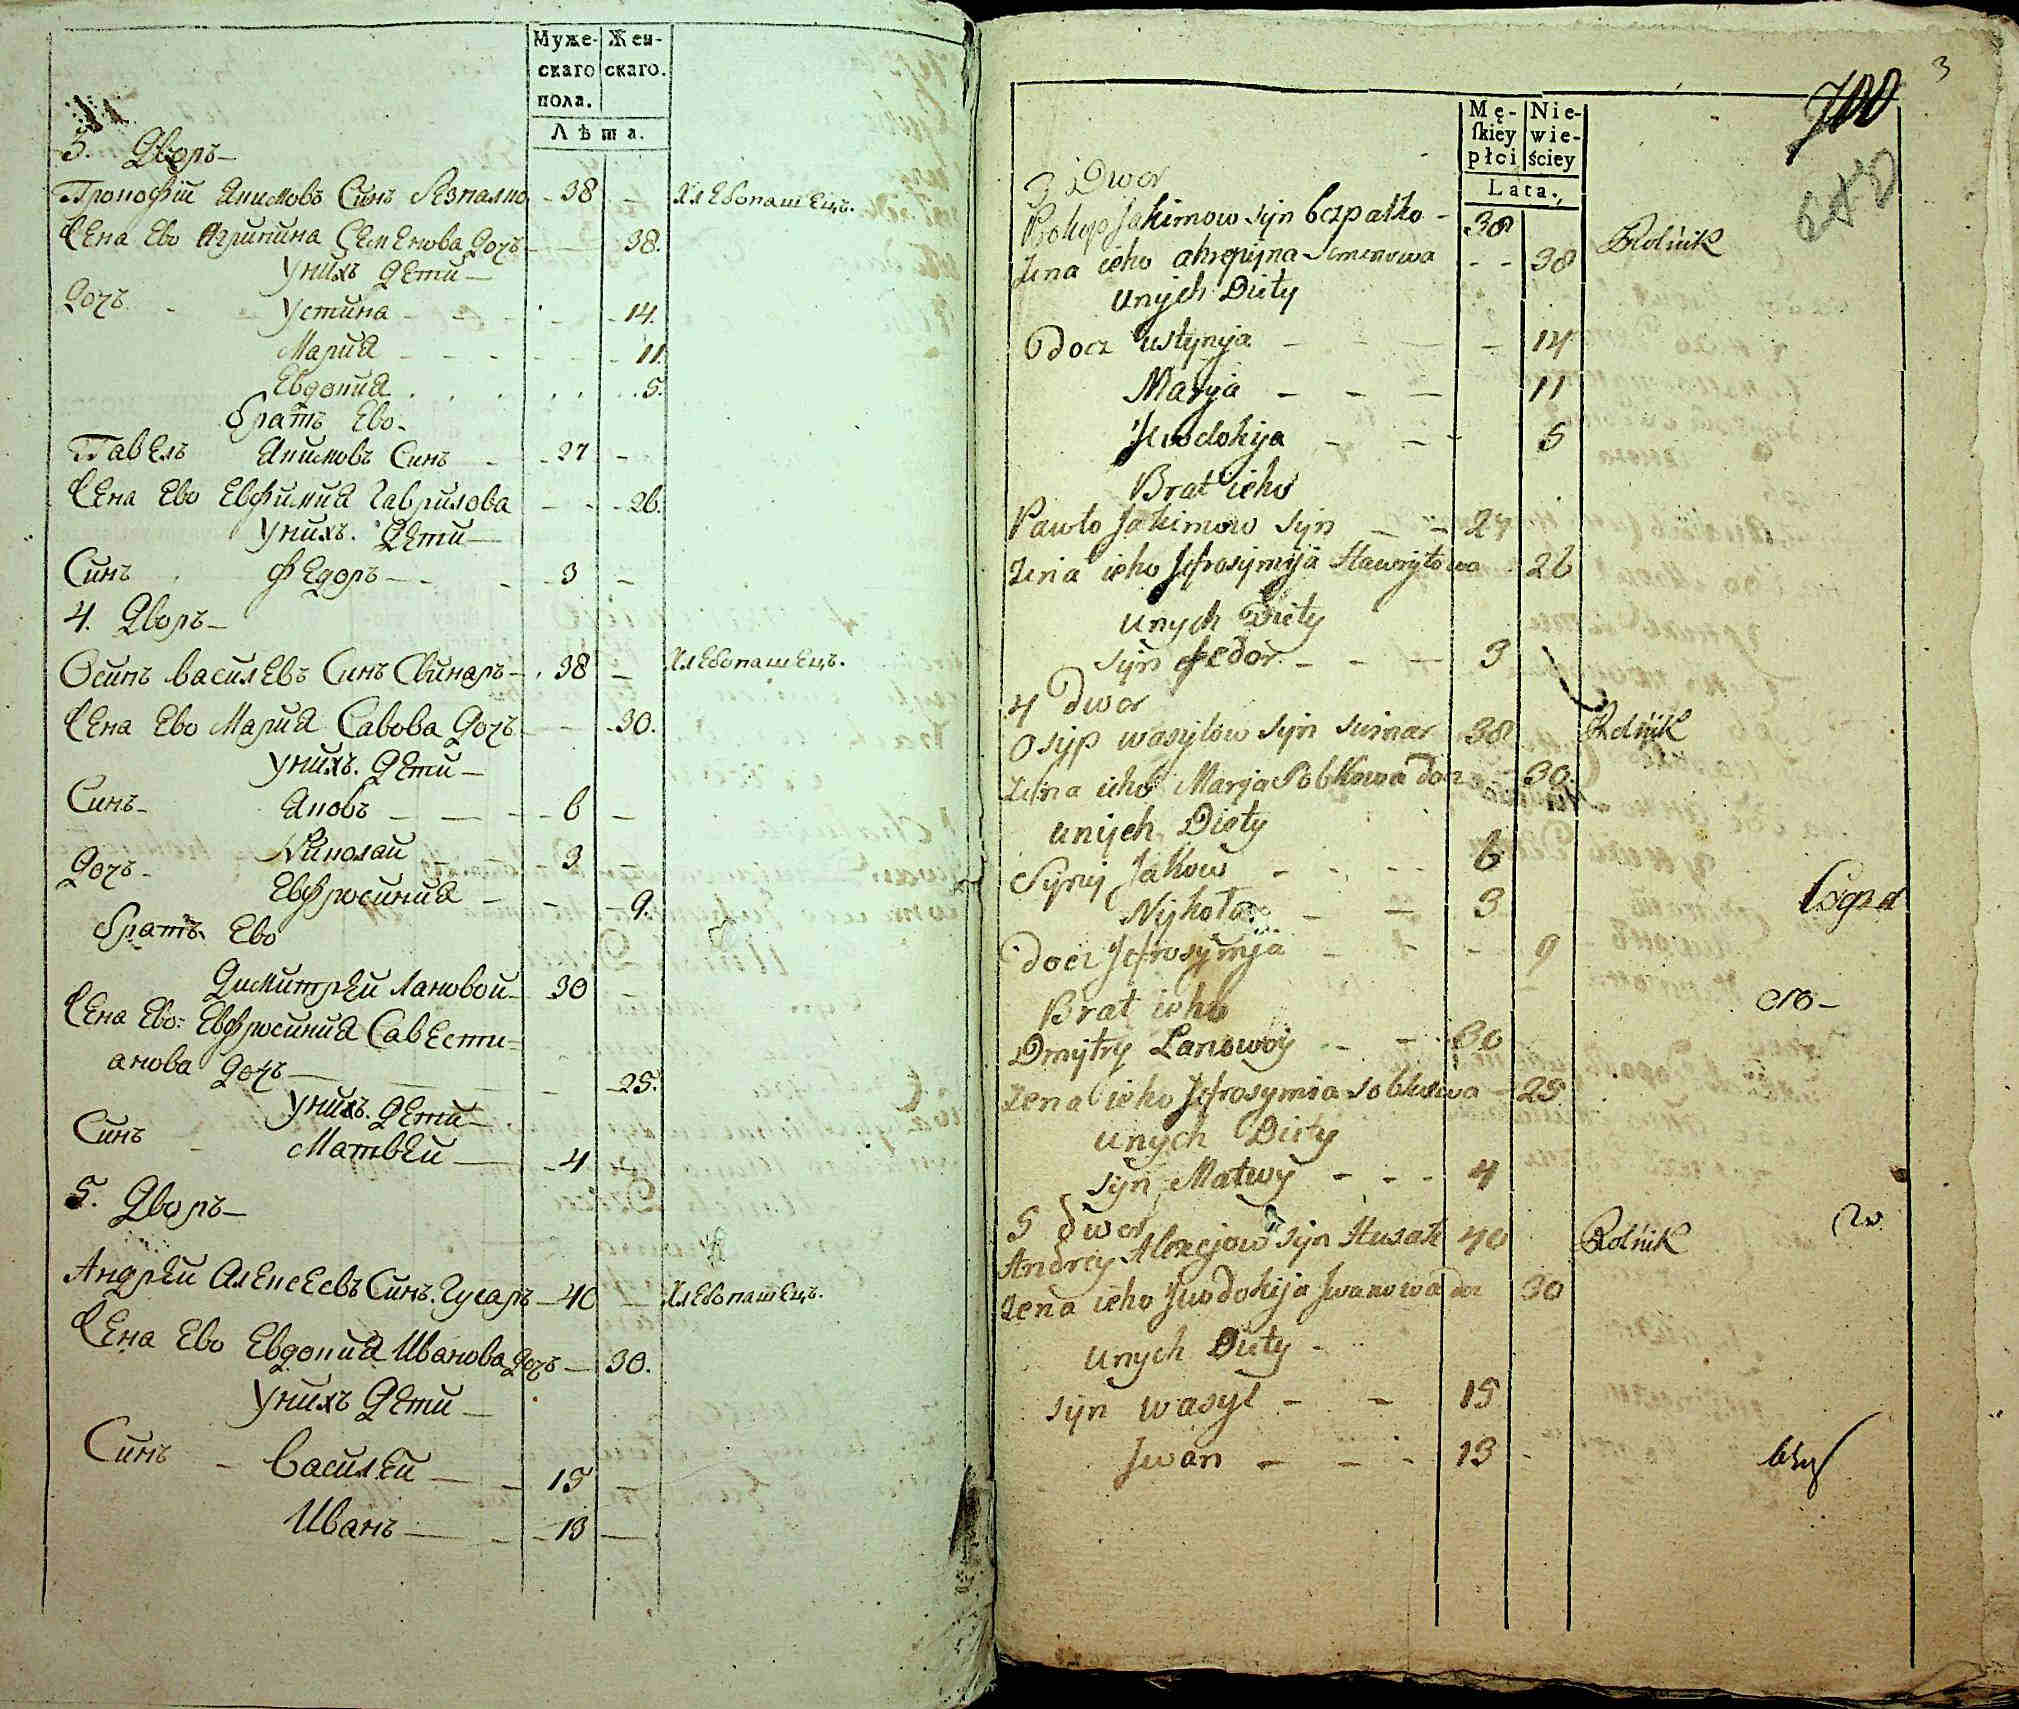 Муже-
скаго
пола.
Жен-
скаго.
Лѣта.
3. Дворъ
Прокофій Акимовъ Синъ Безпалко 38 Хлебопашецъ.
Жена Ево Агрипина Семенова Дочъ 38.
Унихъ Дети
Дочъ Устина 14.
Мария 11.
Евдокия 5.
братъ Ево
Павелъ Акимовъ Синъ 27
Жена Ево Евфимия Гаврилова 26.
Унихъ. Дети
Синъ Федоръ 3
4. Дворъ
Осипъ Василевъ Синъ Свинаръ 38 Хлебопашецъ.
Жена Ево Мария Савова Дочъ 30.
Унихъ. Дети
Синъ Яковъ 6
Николай 3
Дочъ Евфросиния 9.
братъ Ево
Димитрей Лановой 30
Жена Ево: Евфросиния Савести=
анова Дочъ 25.
Унихъ. Дети
Синъ Матвей 4
5. Дворъ
Андрей Алексеевъ Синъ. Гусаръ 40 Хлебопашецъ.
Жена Ево Евдокия Иванова Дочъ 30.
Унихъ Дети
Синъ Василей 15
Иванъ 13
3
700
Mę-
skiey
płci
Nie-
wie-
ściey
Lata.
3 Dwor
Prokop Jakimow syn bezpalko 38 Rolnik
Zena ieho ahrepijna Semenowa 38
unych Diety
Docz ustynyja 14
Maryja 11
Jwdokija 5
Brat ieho
Pawło Jakimow syn 27
Zena ieho Jefrosymyja Hawryłowa 26
unych Diety
syn fedor 3
4 Dwor
Osyp wasylow syn swinar 38 Rolnik
Zena ieho Marja Sobkowa Docz 30
unych Diety
Synij Jakow 6
Nykoła 3
Docz Jefrosymja 9
Brat ieho
Dmytry Lanowoy 30
Zena ieho Jefrosymia Sobkowa 25
unych Diety
syn Matwy 4
5 Dwor
Andrey Alexejow syn Husar 40 Rolnik
Zena ieho Jwdokija Jwanowa doz 30
unych Diety
syn wasyl 15
Jwan 13